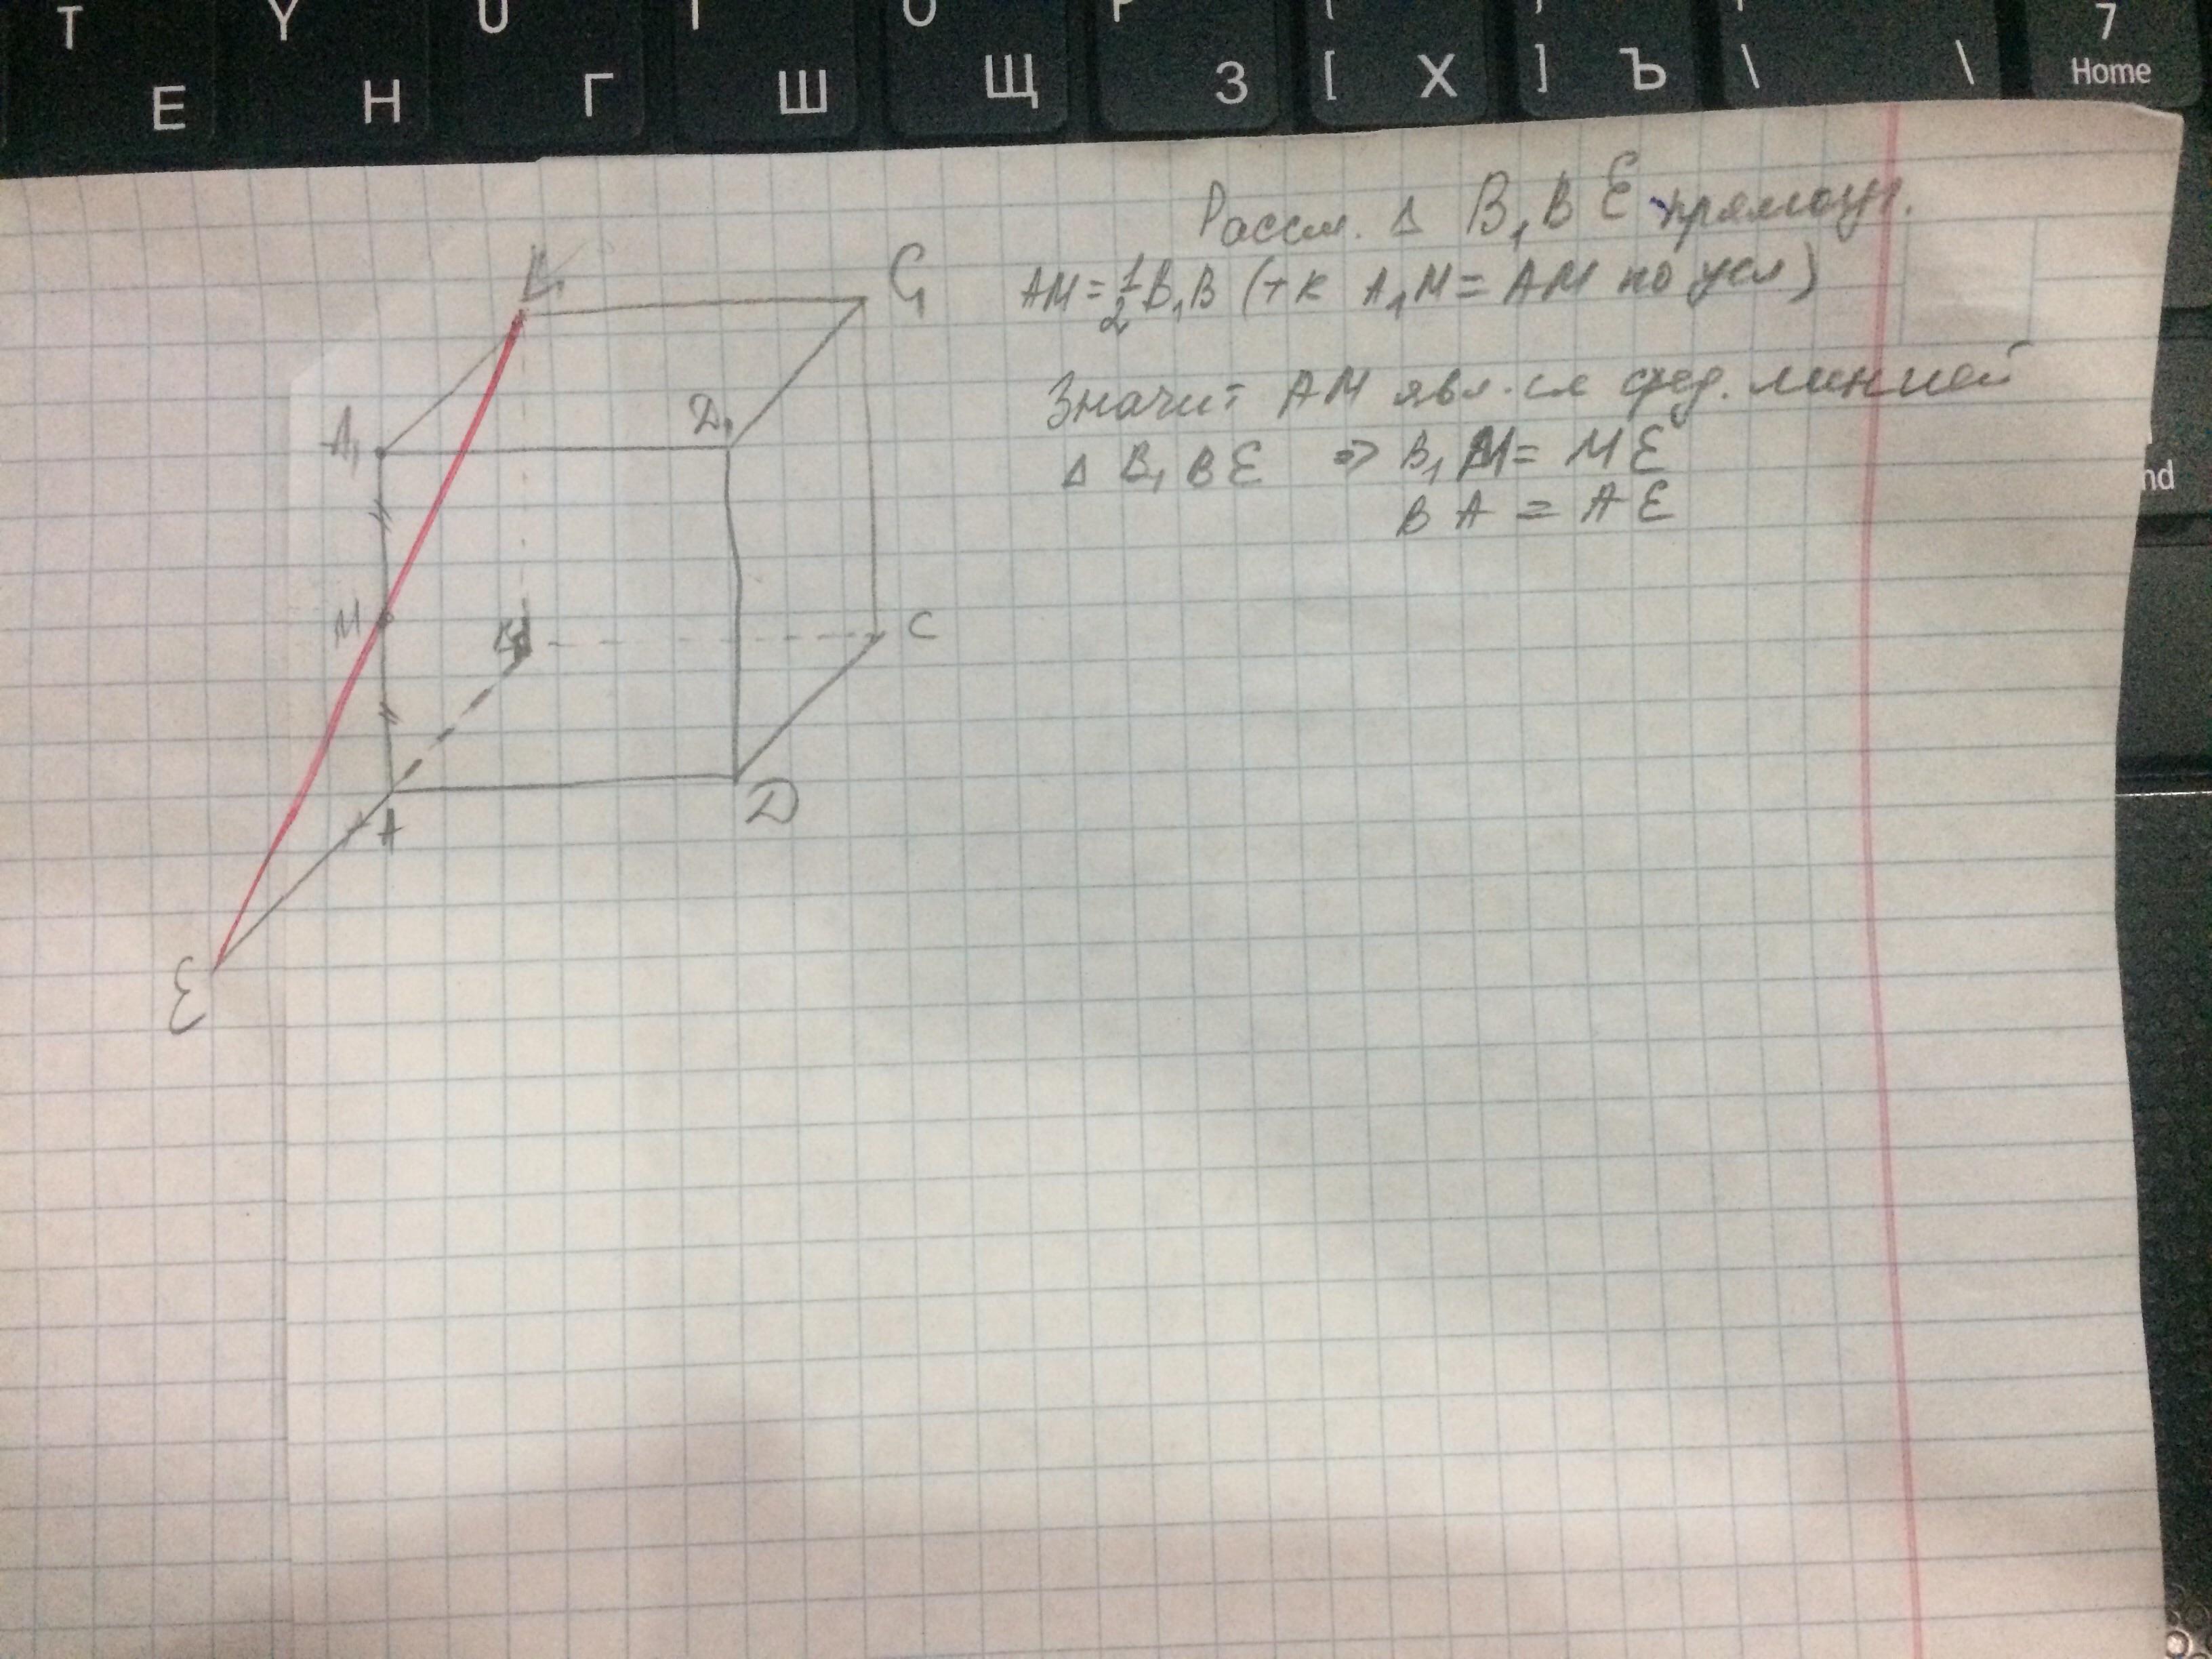 T Y U I O P [ ] \ 7
Е Н Г Ш Щ З [ Х ] Ъ \ \ Home
nd
Рассм. Δ B₁BE прямоуг.
AM = ½B₁B (т к A₁M = AM по усл)
Значит AM явл-ся сред. линией
Δ B₁BE ⇒ B₁M = ME
BA = AE
B₁ C₁
A₁ D₁
M B C
A D
E